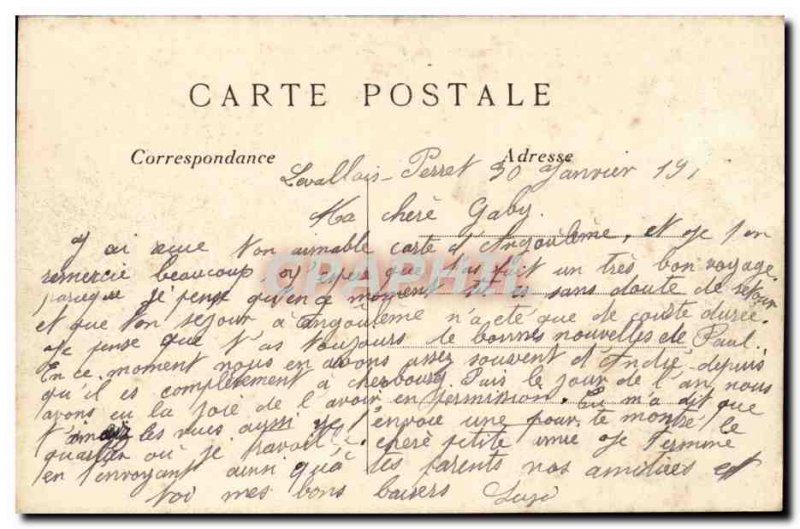 CARTE POSTALE
Correspondance
Adresse
Levallois-Perret 30 Janvier 191
Ma chere Gaby.
J ai recue ton aimable carte d'Angoulême, et je t en
remercie beaucoup j'espere que t'as fait un très bon voyage.
parceque je pense qu'en ce moment tu es sans doute de retour
et que ton sejour à angoulême n'a ete que de courte durée.
Je pense que t'as toujours de bonnes nouvelles de Paul.
En ce moment nous en avons assez souvent d'André, depuis
qu'il es complètement à cherbourg. Puis le jour de l'an, nous
avons eu la joie de l avoir en permission. Tu m'a dit que
t'aimais les vues aussi je t'envoie une pour te montré le
quartier où je travail. chere petite amie je termine
en t'envoyant ainsi qu'à tes parents nos amitiées et
toi mes bons baisers